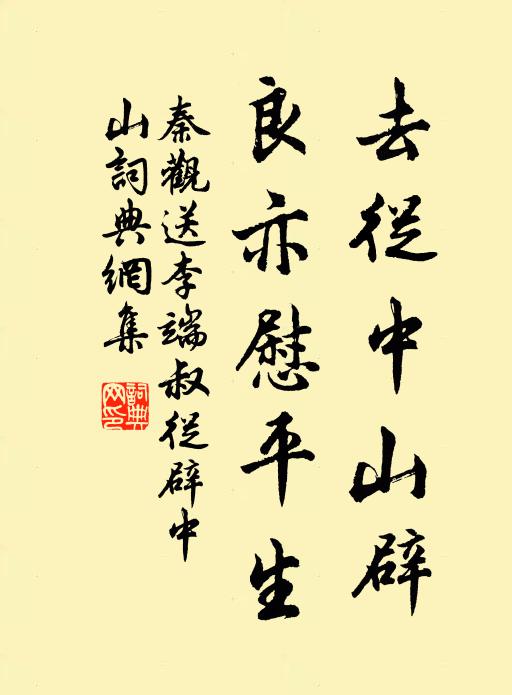 去從中山辟
良亦慰平生
秦觀送李端叔從辟中
山詞典網集
詞典
网印